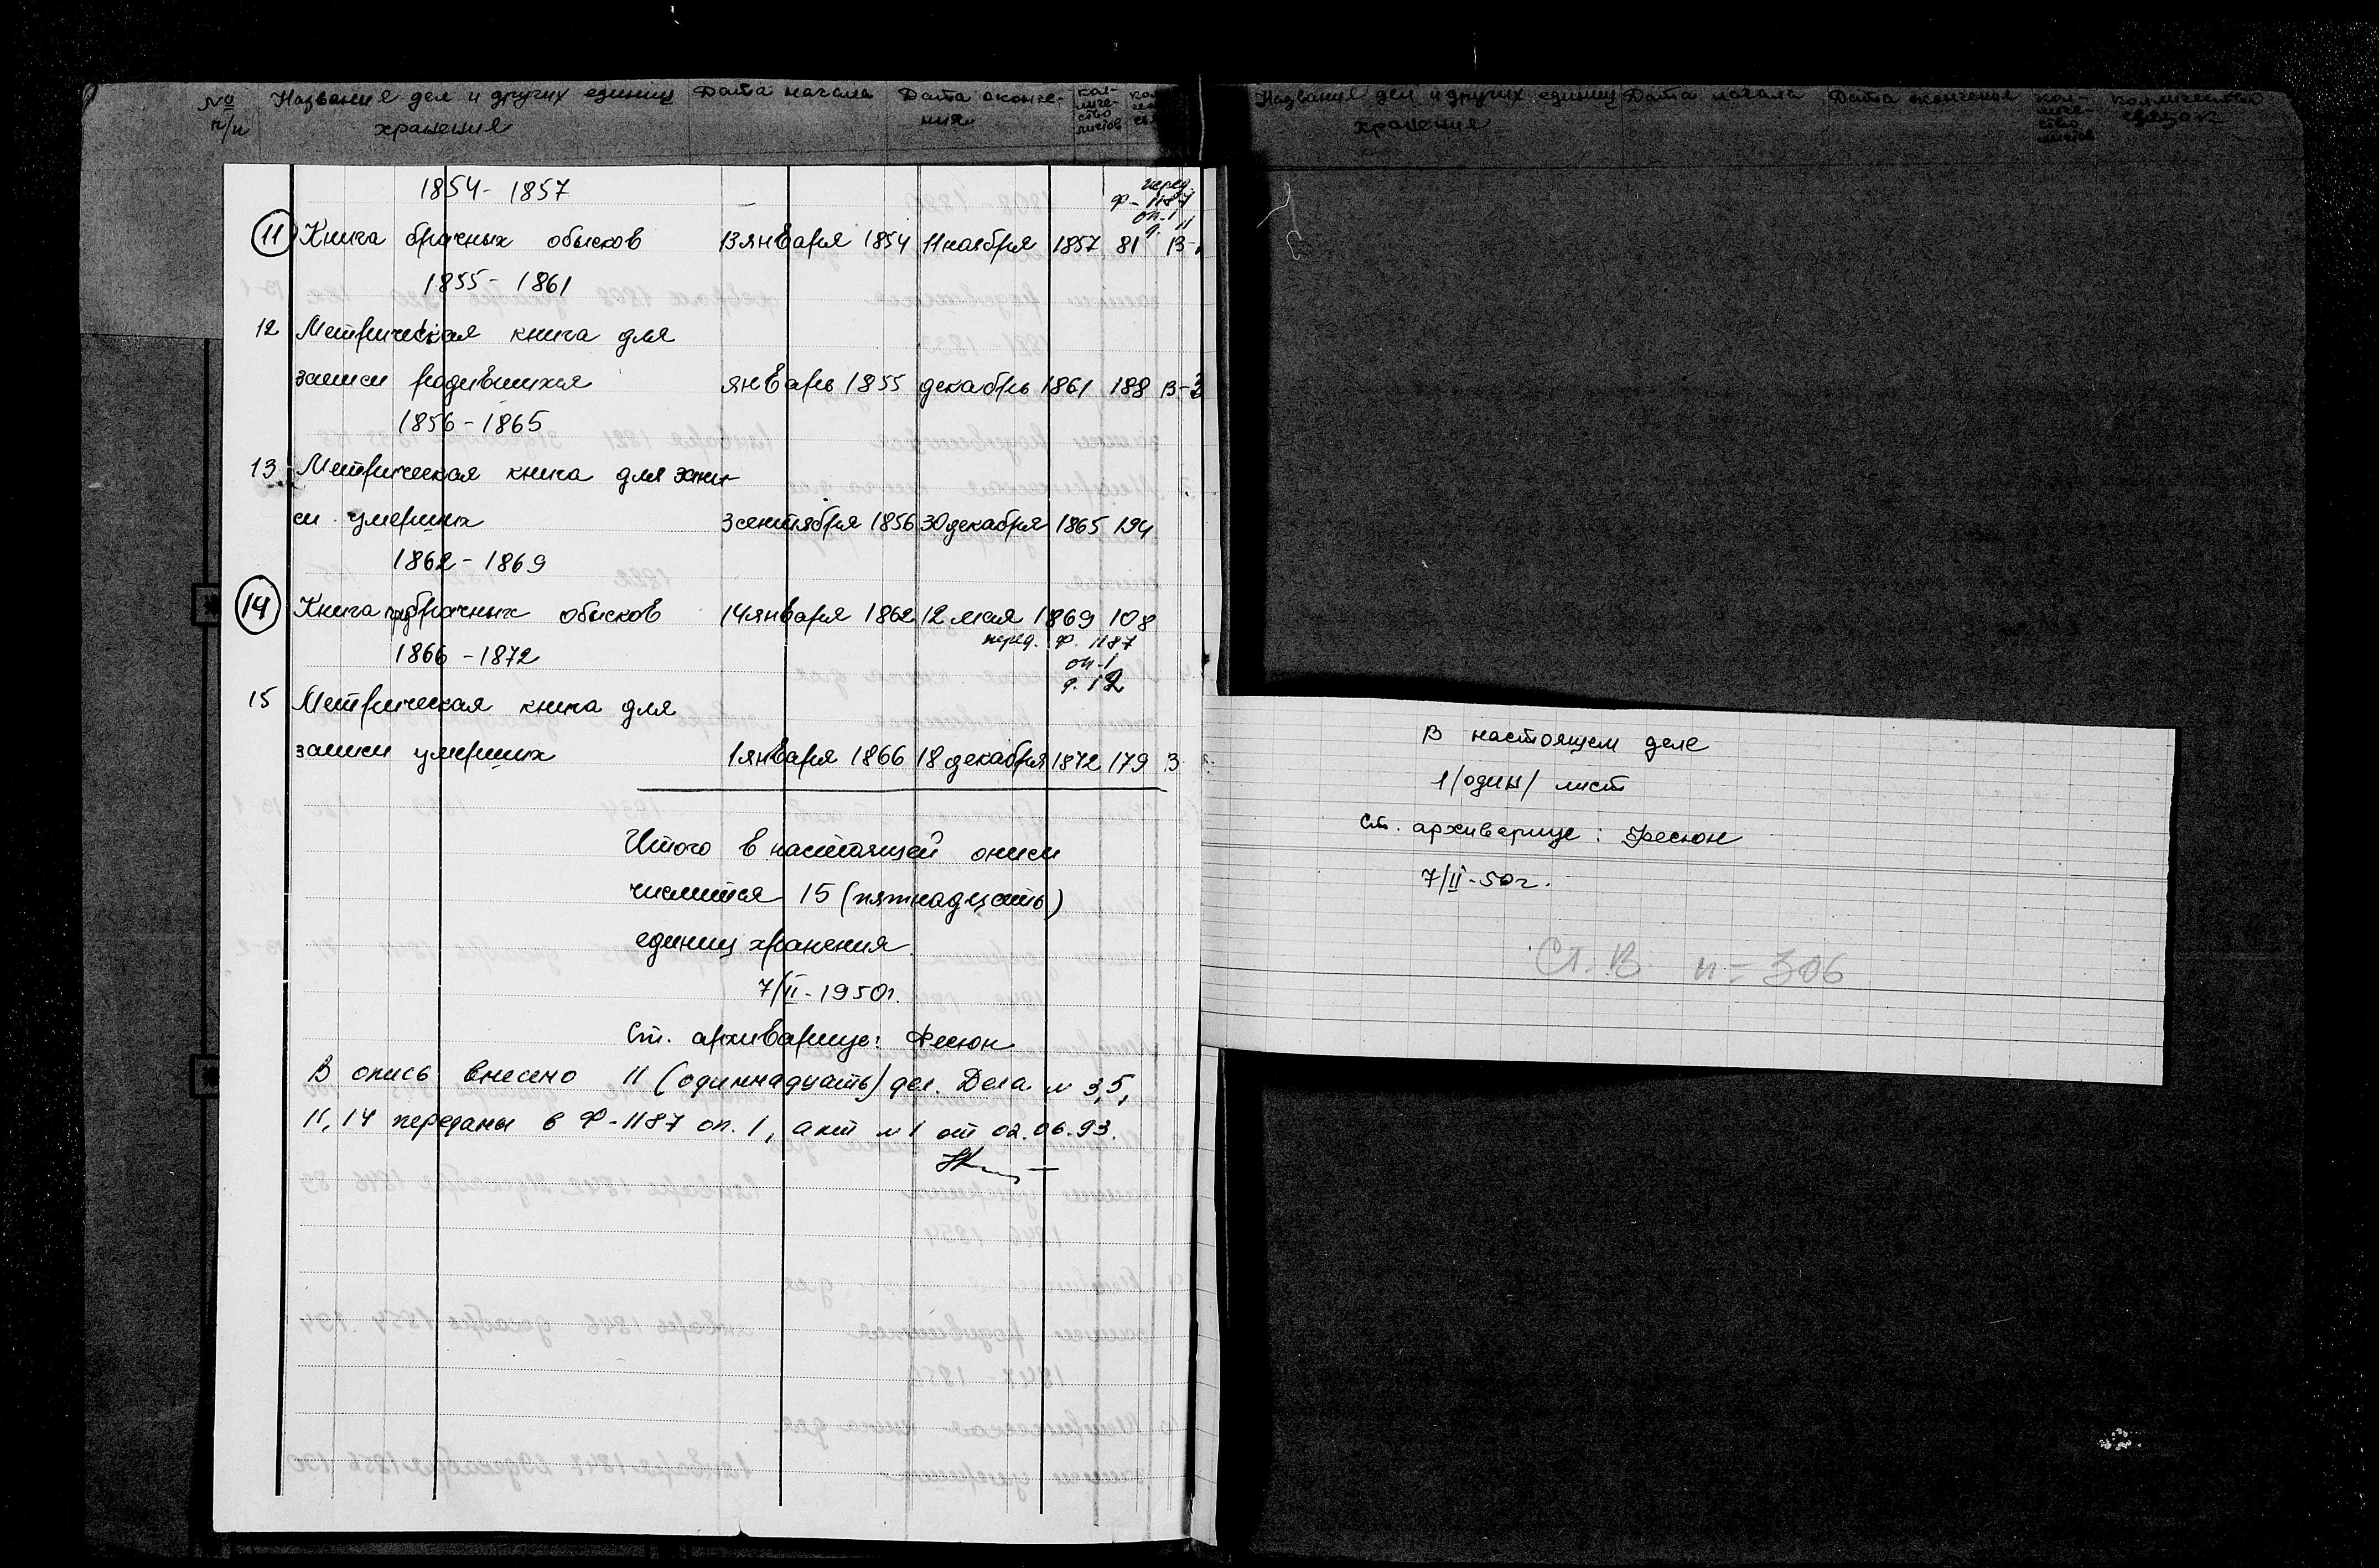 № п/п Название дел и других единиц хранения Дата начала Дата оконче-ния кол-личе-ство листов
1854 - 1857
перед.
Ф - 1187
оп-1
д. 11
11 Книга брачных обысков 13 января 1854 11 ноября 1857 81 В-
1855 - 1861
12 Метрическая книга для
записи родившихся январь 1855 декабрь 1861 188 В-3
1856 - 1865
13 Метрическая книга для запи-
си умерших 3 сентября 1856 30 декабря 1865 194
1862 - 1869
14 Книга предбрачных обысков 14 января 1862 12 мая 1869 108
перед. Ф. 1187
оп-1
д. 12
1866 - 1872
15 Метрическая книга для
записи умерших 1 января 1866 18 декабря 1872 179 В
Итого в настоящей описи
числится 15 (пятнадцать)
единиц хранения.
7/II - 1950г.
Ст. архивариус: Фесюн
В опись внесено 11 (одиннадцать) дел. Дела № 3, 5,
11, 14 переданы в Ф-1187 оп. 1, акт №1 от 02.06.93.
Название дел и других единиц хранения Дата начала Дата окончения кол-личе-ство листов колличество связок
В настоящем деле
1 /один/ лист
Ст. архивариус: Фесюн
7/II - 50г.
Ст. В. н = 306